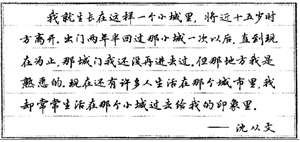 我就生长在这样一个小城里，将近十五岁时
方离开。出门两年半回过那小城一次以后，直到现
在为止，那城门我还没再进去过。但那地方我是
熟悉的。现在还有许多人生活在那个城市里，我
却常常生活在那个小城过去给我的印象里。
——沈从文